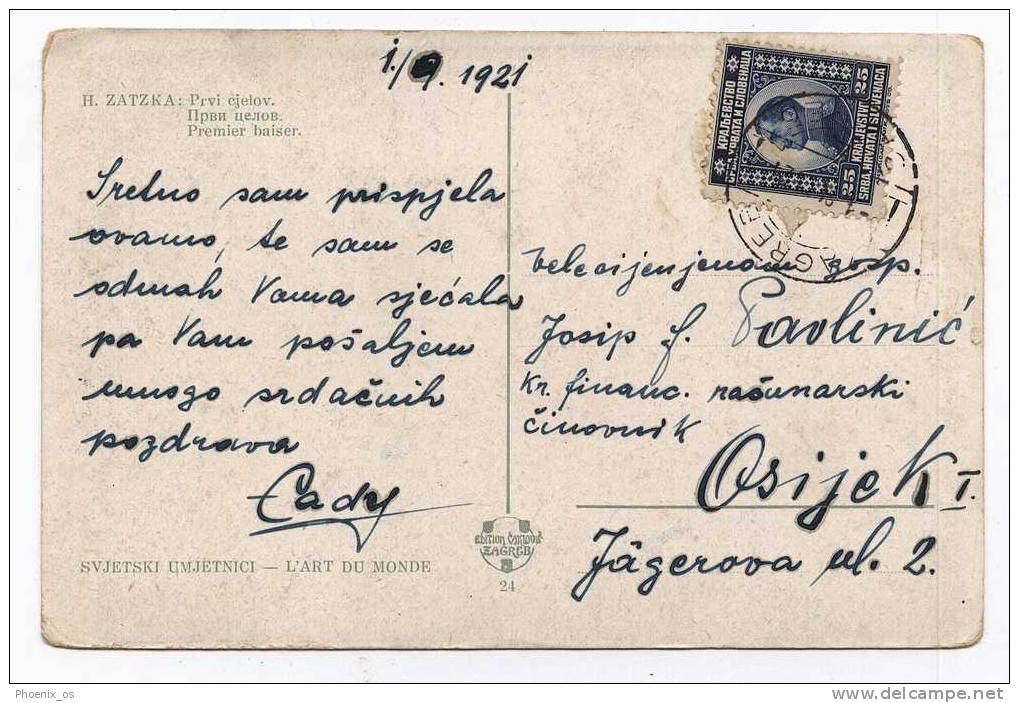 1./9. 1921
H. ZATZKA: Prvi cjelov.
Први целов.
Premier baiser.
Sretno sam prispjela
ovamo, te sam se
odmah Vama sjećala
pa Vam pošaljem
mnogo srdačnih
pozdrava
Cady
КРАЉЕВСТВО
СРБА, ХРВАТА И СЛОВЕНАЦА
25 25
KRALJEVSTVO
SRBA, HRVATA I SLOVENACA
ZAGREB
Velecijenjenom gosp.
Josip J. Pavlinić
Kr. financ. računarski
činovnik
Osijek I.
Jägerova ul. 2.
EDITION ČAKLOVIĆ
ZAGREB
24
SVJETSKI UMJETNICI — L'ART DU MONDE
Phoenix_os
delcampe.net